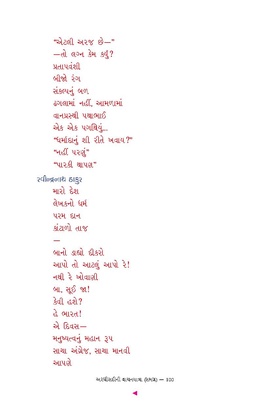 “એટલી અરજ છે—”
—તો લગ્ન કેમ કર્યું?
પ્રતાપવંશી
બીજો રંગ
સંકલ્પનું બળ
ઢગલામાં નહીં, આમળામાં
વાનપ્રસ્થી પથાભાઈ
એક એક પગથિયું...
“ધર્માદાનું શી રીતે ખવાય?”
“નહીં પરણું”
“પારકી થાપણ”
રવીન્દ્રનાથ ઠાકુર
મારો દેશ
લેખકનો ધર્મ
પરમ દાન
કાંટાળો તાજ
—
બાનો ડાહ્યો દીકરો
આપો તો આટલું આપો રે!
નથી રે ખોવાણી
બા, સૂઈ જા!
કેવી હશે?
હે ભારત!
એ દિવસ—
મનુષ્યત્વનું મહાન રૂપ
સાચા અંગ્રેજ, સાચા માનવી
આપણે
અરધી સદીની વાચનયાત્રા